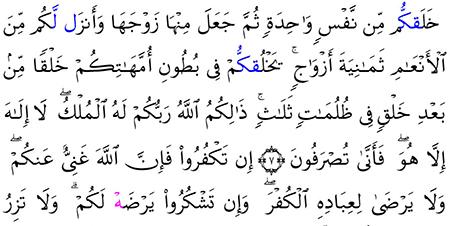 خَلَقكُّم مِّن نَّفْسٍ وَٰحِدَةٍ ثُمَّ جَعَلَ مِنْهَا زَوْجَهَا وَأَنزَل لَّكُم مِّنَ
ٱلْأَنْعَٰمِ ثَمَٰنِيَةَ أَزْوَٰجٍ ۚ يَخْلُقكُّمْ فِى بُطُونِ أُمَّهَٰتِكُمْ خَلْقًا مِّنۢ
بَعْدِ خَلْقٍ فِى ظُلُمَٰتٍ ثَلَٰثٍ ۚ ذَٰلِكُمُ ٱللَّهُ رَبُّكُمْ لَهُ ٱلْمُلْكُ ۖ لَا إِلَٰهَ
إِلَّا هُوَ ۖ فَأَنَّىٰ تُصْرَفُونَ ﴿٧﴾ إِن تَكْفُرُوا۟ فَإِنَّ ٱللَّهَ غَنِىٌّ عَنكُمْ ۖ
وَلَا يَرْضَىٰ لِعِبَادِهِ ٱلْكُفْرَ ۖ وَإِن تَشْكُرُوا۟ يَرْضَهْ لَكُمْ ۗ وَلَا تَزِرُ